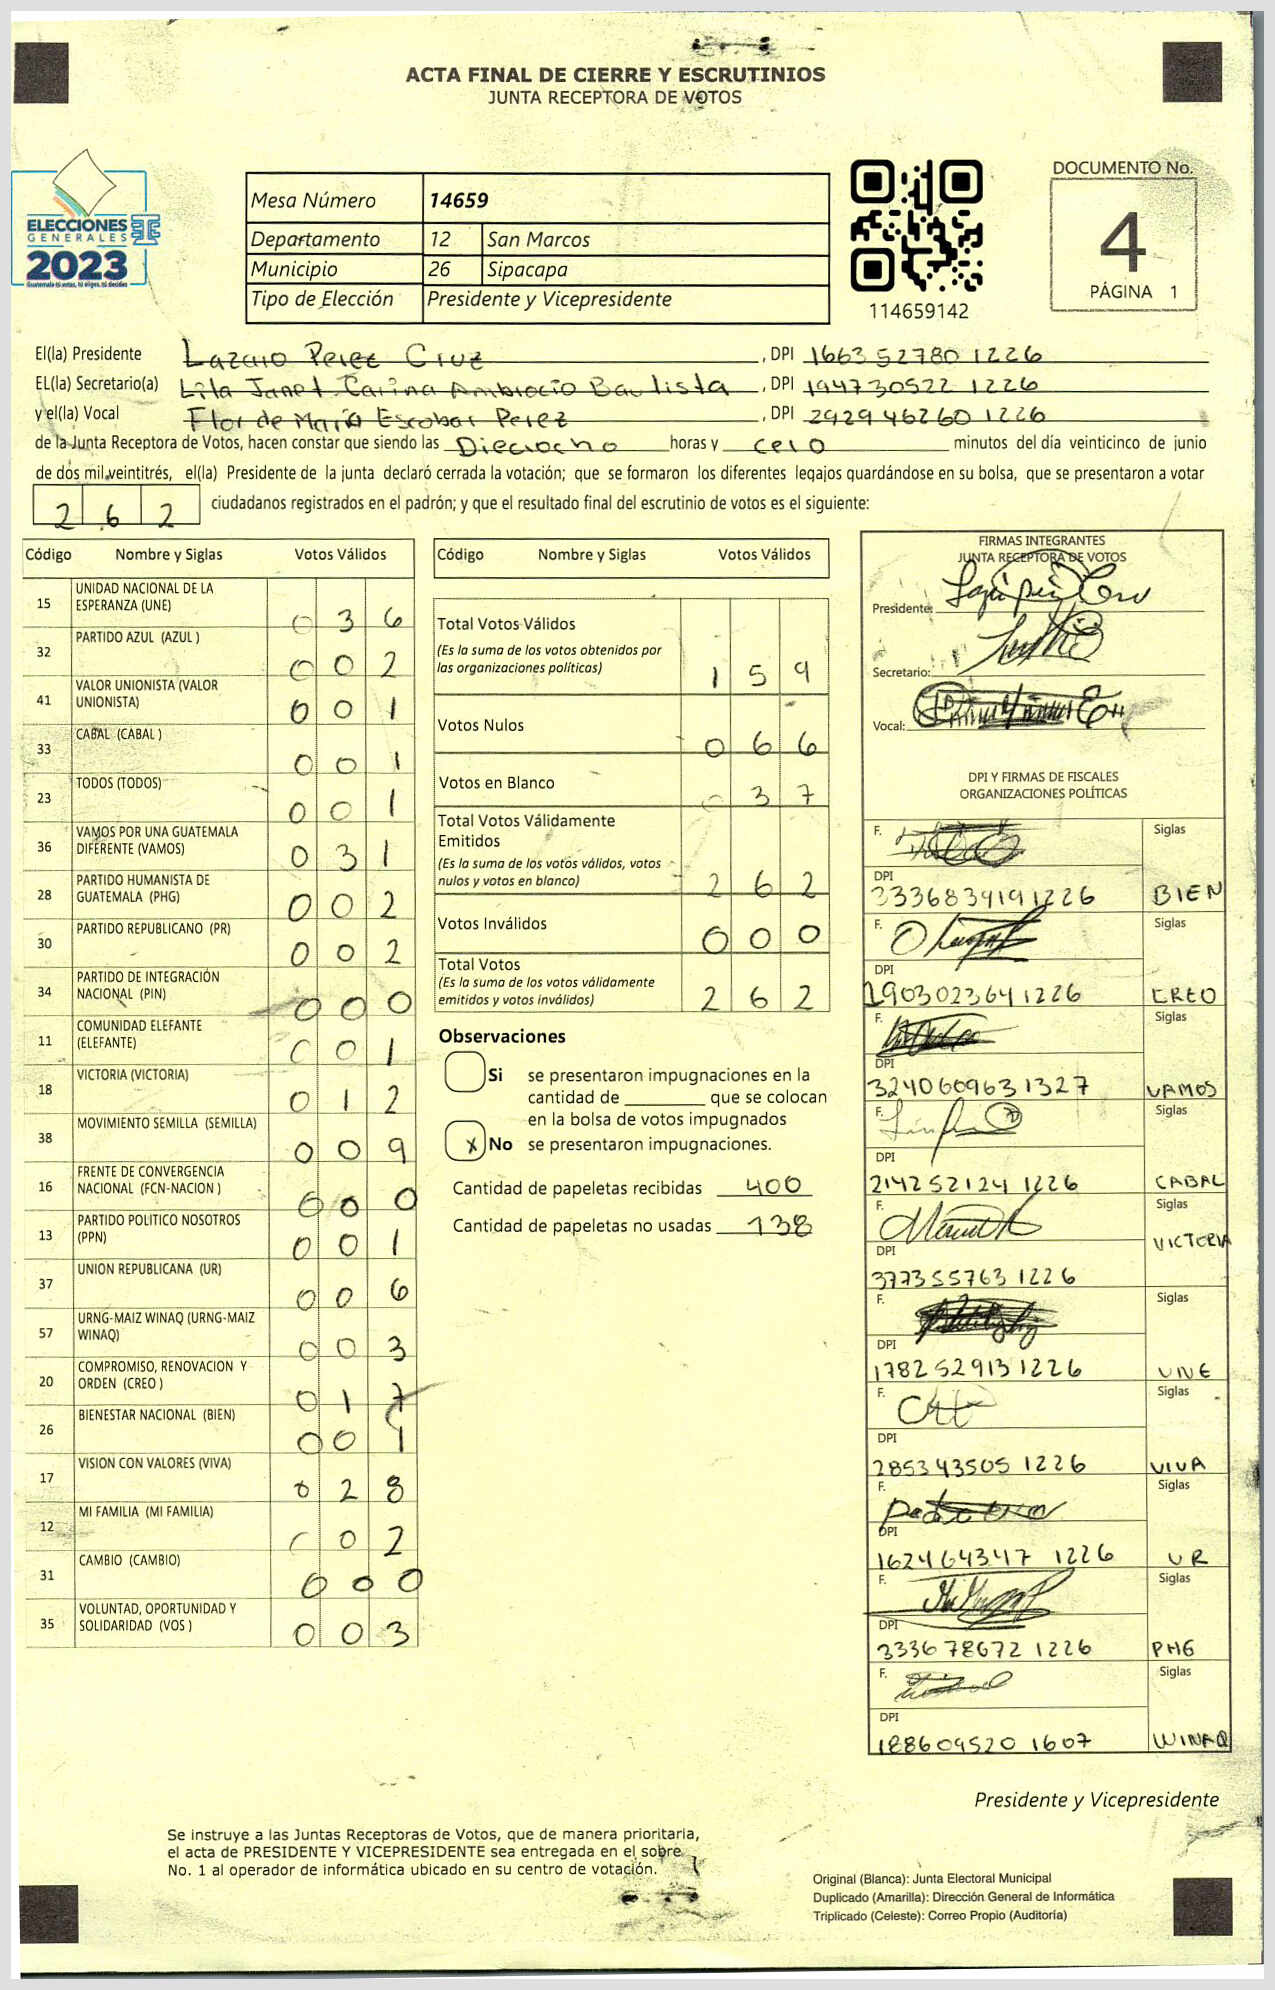 ACTA FINAL DE CIERRE Y ESCRUTINIOS
JUNTA RECEPTORA DE VOTOS
ELECCIONES
GENERALES
2023
Guatemala tú votas, tú eliges, tú decides
Mesa Número 14659
Departamento 12 San Marcos
Municipio 26 Sipacapa
Tipo de Elección Presidente y Vicepresidente
114659142
DOCUMENTO No.
4
PÁGINA 1
El(la) Presidente Lazaro Perez Cruz, DPI 1663 52780 1226
EL(la) Secretario(a) Lila Janet Carina Ambrocio Bautista, DPI 1947 30522 1226
y el(la) Vocal Flor de María Escobar Perez, DPI 2929 46260 1226
de la Junta Receptora de Votos, hacen constar que siendo las Dieciocho horas y cero minutos del día veinticinco de junio
de dos mil veintitrés, el(la) Presidente de la junta declaró cerrada la votación; que se formaron los diferentes legajos guardándose en su bolsa, que se presentaron a votar
262 ciudadanos registrados en el padrón; y que el resultado final del escrutinio de votos es el siguiente:
Código Nombre y Siglas Votos Válidos
15 UNIDAD NACIONAL DE LA ESPERANZA (UNE) 0 3 6
32 PARTIDO AZUL (AZUL ) 0 0 2
41 VALOR UNIONISTA (VALOR UNIONISTA) 0 0 1
33 CABAL (CABAL ) 0 0 1
23 TODOS (TODOS) 0 0 1
36 VAMOS POR UNA GUATEMALA DIFERENTE (VAMOS) 0 3 1
28 PARTIDO HUMANISTA DE GUATEMALA (PHG) 0 0 2
30 PARTIDO REPUBLICANO (PR) 0 0 2
34 PARTIDO DE INTEGRACIÓN NACIONAL (PIN) 0 0 0
11 COMUNIDAD ELEFANTE (ELEFANTE) 0 0 1
18 VICTORIA (VICTORIA) 0 1 2
38 MOVIMIENTO SEMILLA (SEMILLA) 0 0 9
16 FRENTE DE CONVERGENCIA NACIONAL (FCN-NACION ) 0 0 0
13 PARTIDO POLITICO NOSOTROS (PPN) 0 0 1
37 UNION REPUBLICANA (UR) 0 0 6
57 URNG-MAIZ WINAQ (URNG-MAIZ WINAQ) 0 0 3
20 COMPROMISO, RENOVACION Y ORDEN (CREO) 0 1 7
26 BIENESTAR NACIONAL (BIEN) 0 0 1
17 VISION CON VALORES (VIVA) 0 2 8
12 MI FAMILIA (MI FAMILIA) 0 0 2
31 CAMBIO (CAMBIO) 0 0 0
35 VOLUNTAD, OPORTUNIDAD Y SOLIDARIDAD (VOS ) 0 0 3
Código Nombre y Siglas Votos Válidos
Total Votos Válidos
(Es la suma de los votos obtenidos por
las organizaciones políticas) 1 5 9
Votos Nulos 0 6 6
Votos en Blanco 0 3 7
Total Votos Válidamente
Emitidos
(Es la suma de los votos válidos, votos
nulos y votos en blanco) 2 6 2
Votos Inválidos 0 0 0
Total Votos
(Es la suma de los votos válidamente
emitidos y votos inválidos) 2 6 2
Observaciones
Si se presentaron impugnaciones en la
cantidad de ________ que se colocan
en la bolsa de votos impugnados
x No se presentaron impugnaciones.
Cantidad de papeletas recibidas 400
Cantidad de papeletas no usadas 138
FIRMAS INTEGRANTES
JUNTA RECEPTORA DE VOTOS
Presidente:
Secretario:
Vocal:
DPI Y FIRMAS DE FISCALES
ORGANIZACIONES POLÍTICAS
F. Siglas
DPI
3336834191226 BIEN
F. Siglas
DPI
1903023641226 CREO
F. Siglas
DPI
3240609631327 VAMOS
F. Siglas
DPI
2142 52124 1226 CABAL
F. Siglas
DPI VICTORIA
3773 55763 1226
F. Siglas
DPI
1782 52913 1226 UNE
F. Siglas
DPI
2853 43505 1226 VIVA
F. Siglas
DPI
1624 64347 1226 UR
F. Siglas
DPI
3336 78672 1226 PHG
F. Siglas
DPI
188609520 1607 WINAQ
Presidente y Vicepresidente
Se instruye a las Juntas Receptoras de Votos, que de manera prioritaria,
el acta de PRESIDENTE Y VICEPRESIDENTE sea entregada en el sobre
No. 1 al operador de informática ubicado en su centro de votación.
Original (Blanca): Junta Electoral Municipal
Duplicado (Amarilla): Dirección General de Informática
Triplicado (Celeste): Correo Propio (Auditoría)